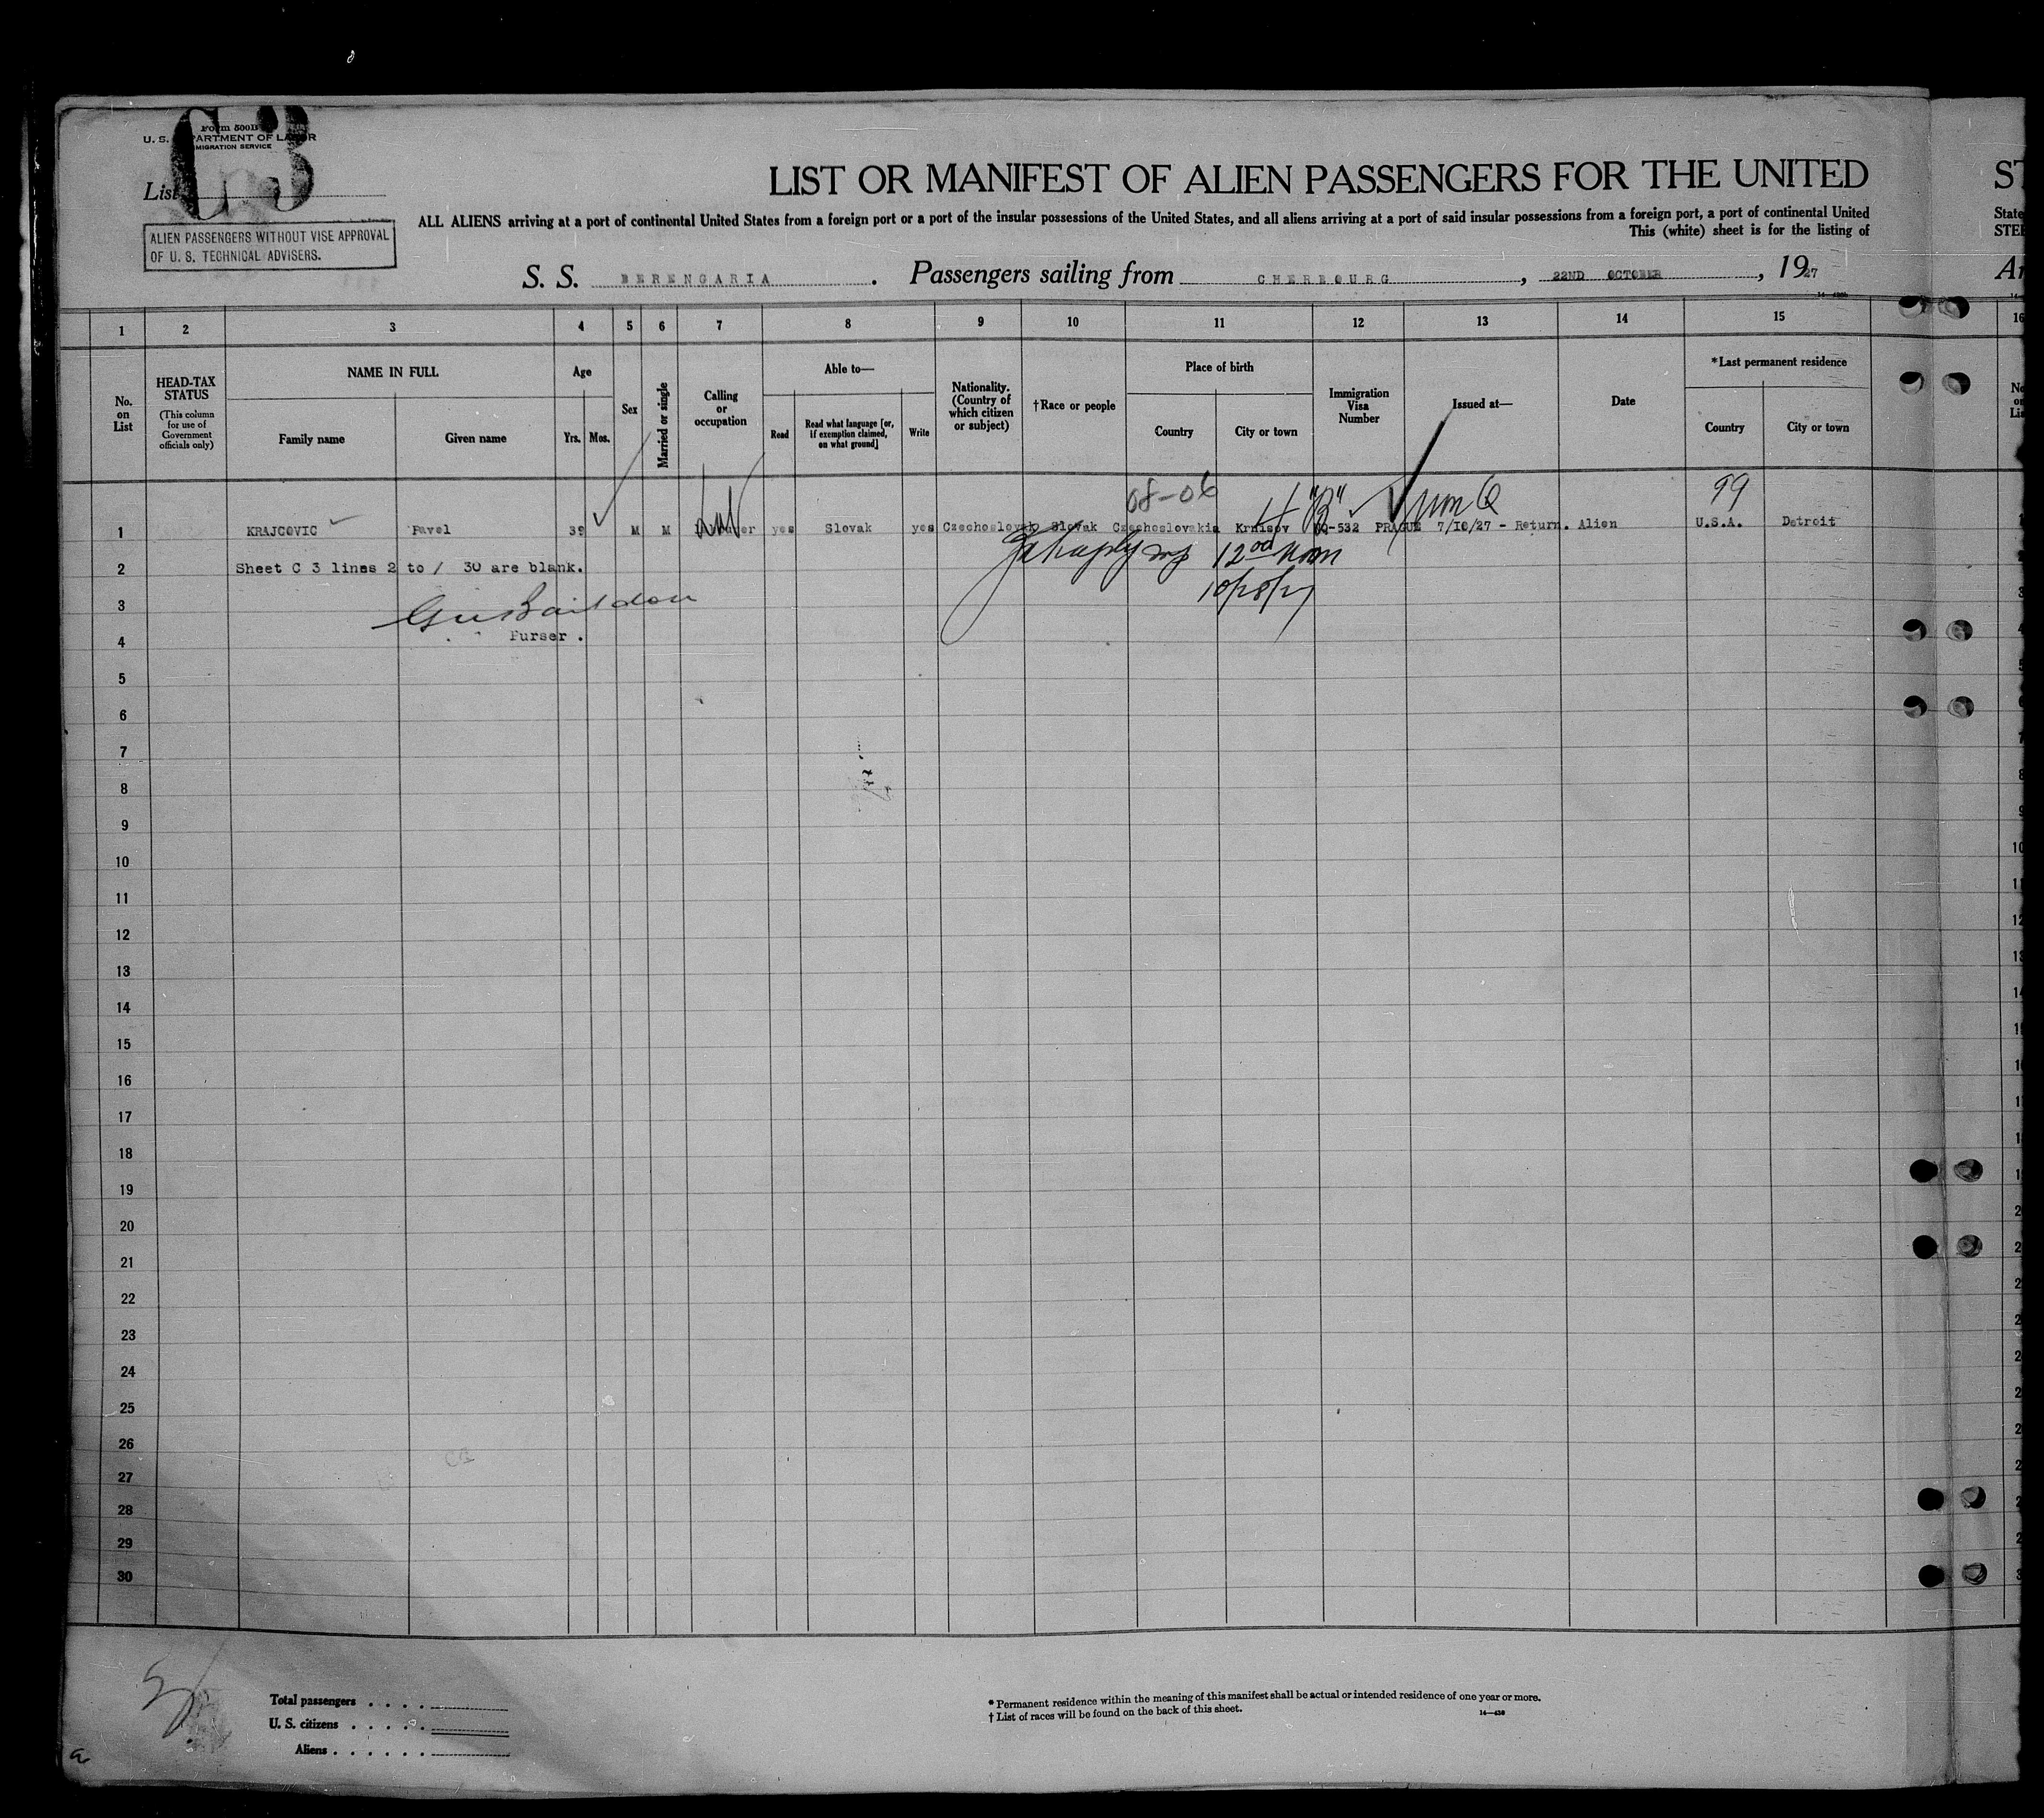 Form 500B
U. S. DEPARTMENT OF LABOR
IMMIGRATION SERVICE
List C 3
ALIEN PASSENGERS WITHOUT VISE APPROVAL
OF U. S. TECHNICAL ADVISERS.
LIST OR MANIFEST OF ALIEN PASSENGERS FOR THE UNITED
ST
ALL ALIENS arriving at a port of continental United States from a foreign port or a port of the insular possessions of the United States, and all aliens arriving at a port of said insular possessions from a foreign port, a port of continental United
State
This (white) sheet is for the listing of
STEE
S. S. BERENGARIA . Passengers sailing from CHERBOURG , 22ND OCTOBER , 1927
Ar
1 2 3 4 5 6 7 8 9 10 11 12 13 14 15 16
No. on List
HEAD-TAX STATUS
(This column for use of Government officials only)
NAME IN FULL
Family name
Given name
Age
Yrs.
Mos.
Sex
Married or single
Calling or occupation
Able to—
Read
Read what language [or, if exemption claimed, on what ground]
Write
Nationality. (Country of which citizen or subject)
†Race or people
Place of birth
Country
City or town
Immigration Visa Number
Issued at—
Date
*Last permanent residence
Country
City or town
08-06 "B" 99
1 KRAJCOVIC Pavel 39 M M yes Slovak yes Czechoslovak Slovak Czechoslovakia Krnisov NQ-532 PRAGUE 7/10/27 - Return. Alien U.S.A. Detroit
12 00 noon
2 Sheet C 3 lines 2 to / 30 are blank.
3
4 Purser .
5
6
7
8
9
10
11
12
13
14
15
16
17
18
19
20
21
22
23
24
25
26
27
28
29
30
Total passengers . . . .
U. S. citizens . . . . .
Aliens . . . . . .
* Permanent residence within the meaning of this manifest shall be actual or intended residence of one year or more.
† List of races will be found on the back of this sheet.
14—430